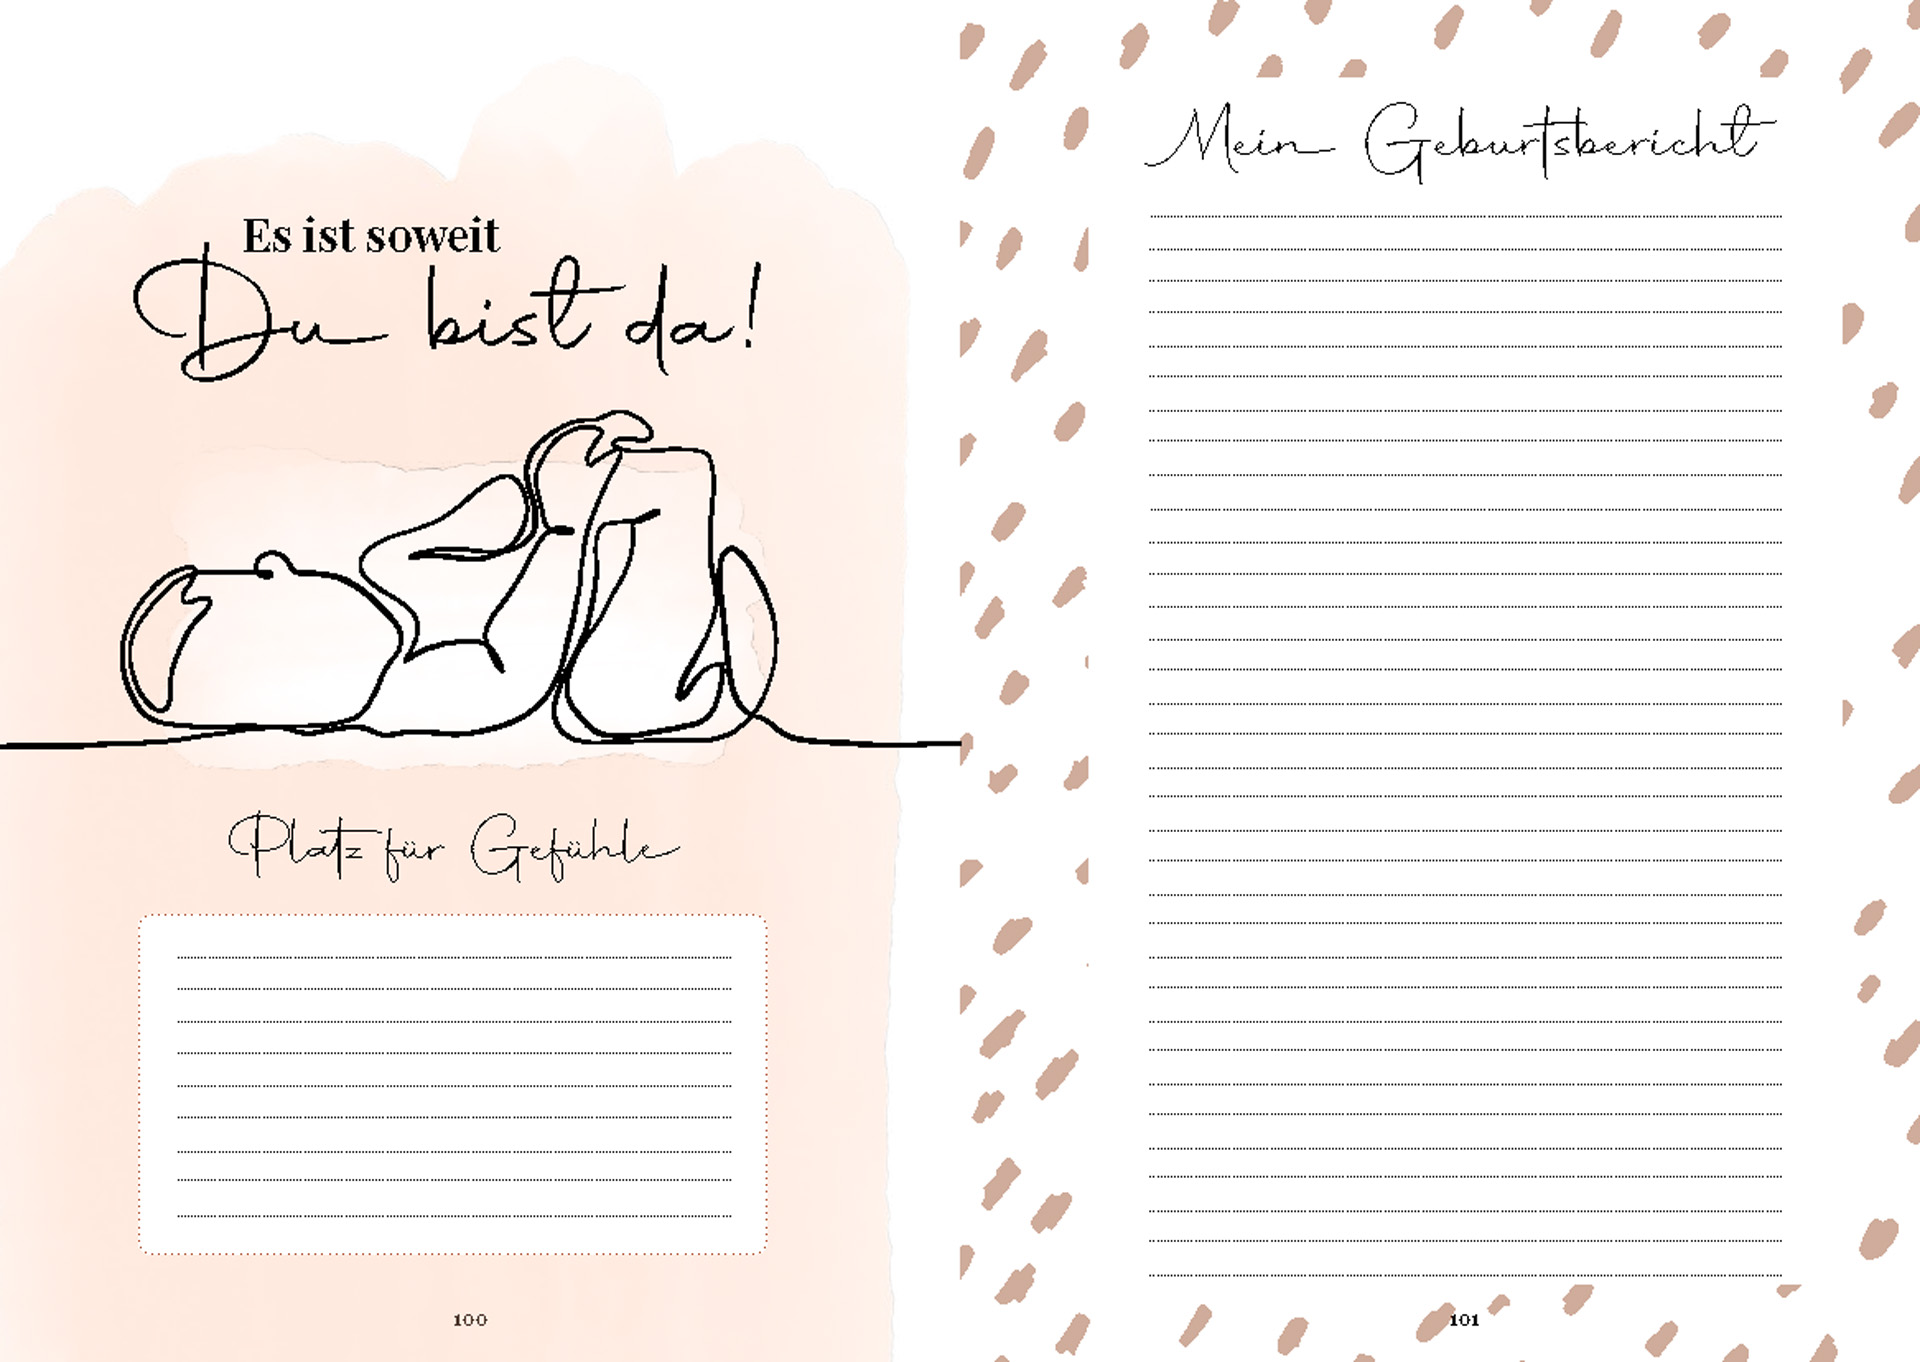 Es ist soweit
Du bist da!
Platz für Gefühle
100
Mein Geburtsbericht
101